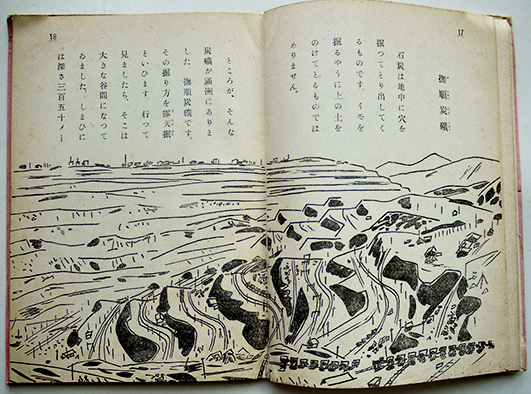 17
撫順炭礦
石炭は地中に穴を
掘つてとり出してく
るものです。イモを
掘るやうに上の土を
のけてとるものでは
ありません。
18
ところが、そんな
炭礦が満洲にありま
した。撫順炭礦です。
その掘り方を露天掘
といひます。行つて
見ましたら、そこは
大きな谷間になつて
ゐました。しまひに
は深さ三百五十メー